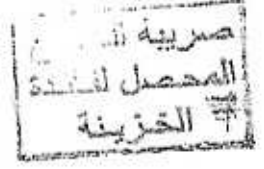 ضريبة
المحصل لفائدة
الخزينة